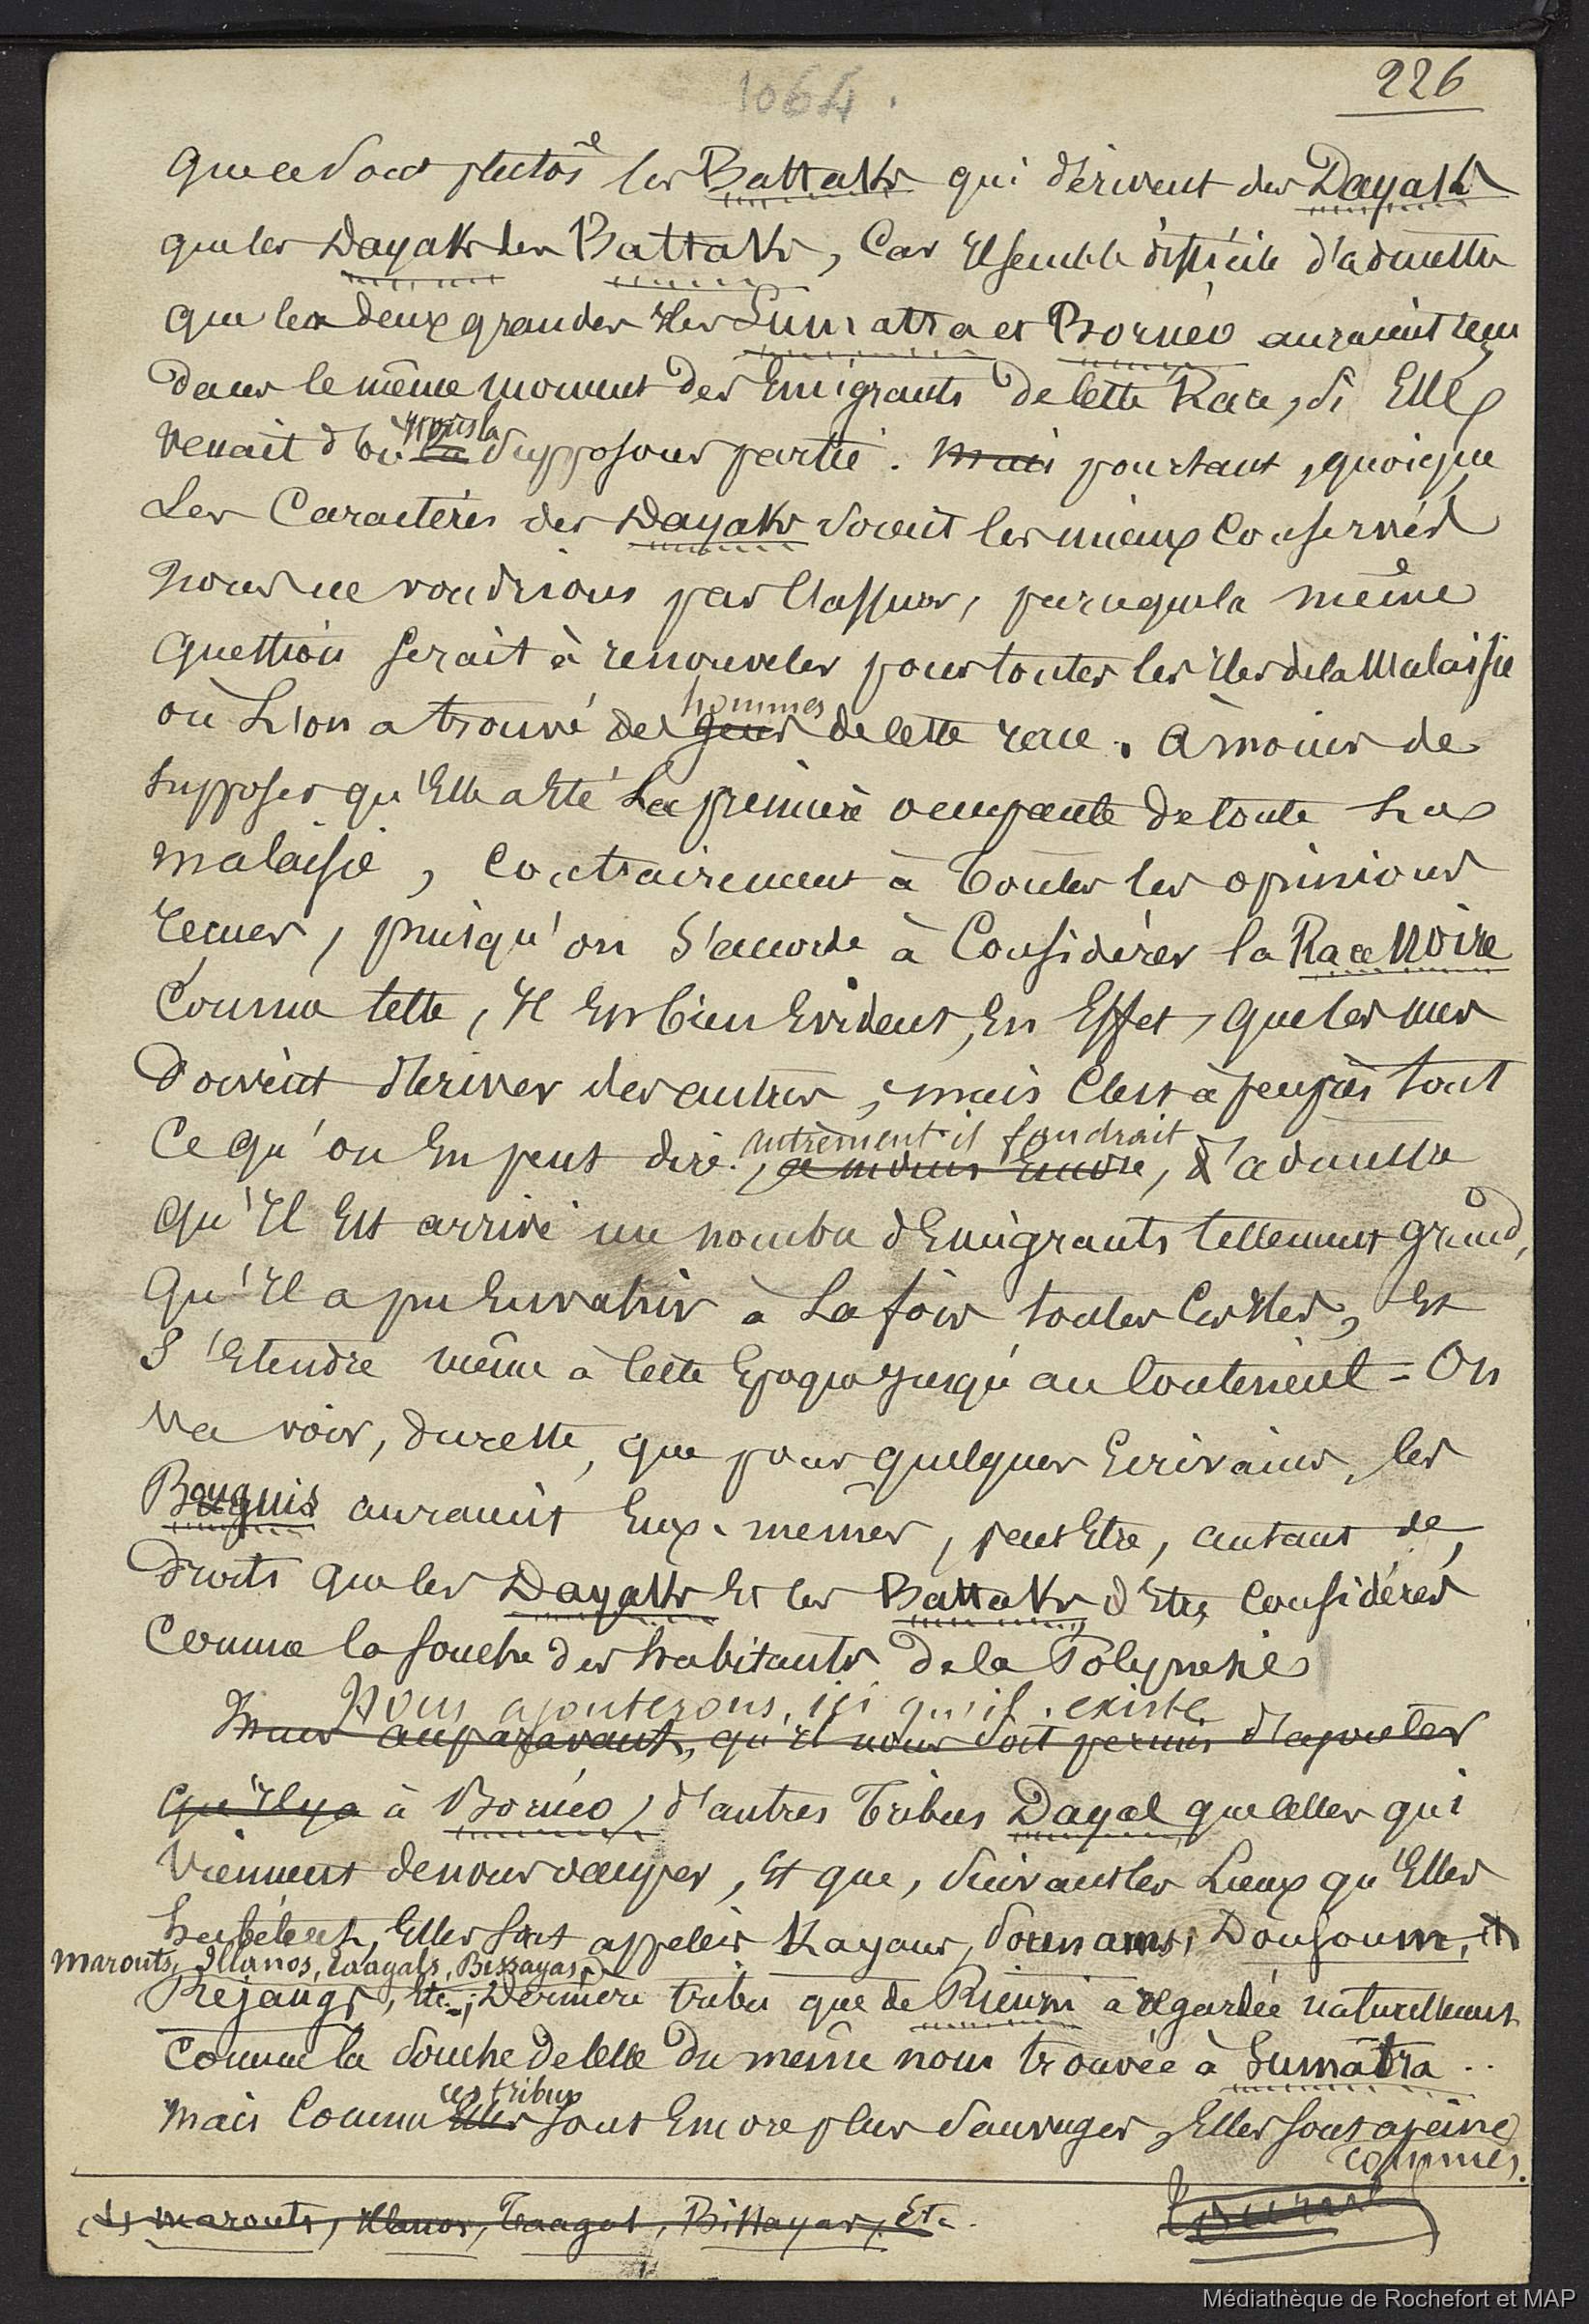 1064.
226
que ce soit plutôt les Battaks qui dérivent des Dayaks
que les Dayaks des Battaks, car Il semble difficile d'admettre
que les deux grandes Iles Sumatra et Bornéo auraient reçu
dans le même moment des Emigrants de cette Race, si Elle
nous la
venait d'où la supposons partie. Mais pourtant, quoique
Les Caractères des Dayaks soient les mieux conservés
nous ne voudrions pas l'assurer, parceque la même
question serait à renouveler pour toutes les Iles de la Malaisie
hommes
où L'on a trouvé des gens de cette race. À moins de
supposer qu'Elle a Eté La première occupante de toute La
malaisie, contrairement à toutes les opinions
reçues, puisqu'on s'accorde à Considérer la Race Noire
Comme telle, Il Est bien Evident, En Effet, que les uns
doivent dériver des autres, mais C'est à peu près tout
autrement il faudrait
Ce qu'on En peut dire. , à moins encore, d'admettre
qu'Il Est arrivé un nombre d'Emigrants tellement grand,
qu'Il a pu Envahir à La fois toutes Ces Iles, Et
S'Etendre même à Cette Epoque jusqu'au Continent = On
va voir, du reste, que pour quelques Ecrivains, les
Bouguis auraient Eux-mêmes, peut Etre, autant de
droits que les Dayaks Et les Battaks d'Etre Considérés
Comme la souche des habitants de la Polynésie
Nous ajouterons ici qu'il existe
Mais auparavant, qu'Il nous soit permis d'ajouter
qu'Il y a à Bornéo, d'autres Tribus Dayak que celles qui
viennent de nous occuper, Et que, suivant les Lieux qu'Elles
habitent, Elles sont appelées Kayans, Dousoum, Et
Marouts, Illanos, Taagals, Bissayas,
Rejangs, Etc.; Dernière tribu que de Rienzi a regardée naturellement
Comme la souche de celle du même nom trouvée à Sumatra ..
ces tribus
Mais Comme Elles sont Encore plus sauvages, Elles sont à peine
connues.
(1) Marouts, Illanos, Taagal, Bissayas, Etc.
Médiathèque de Rochefort et MAP